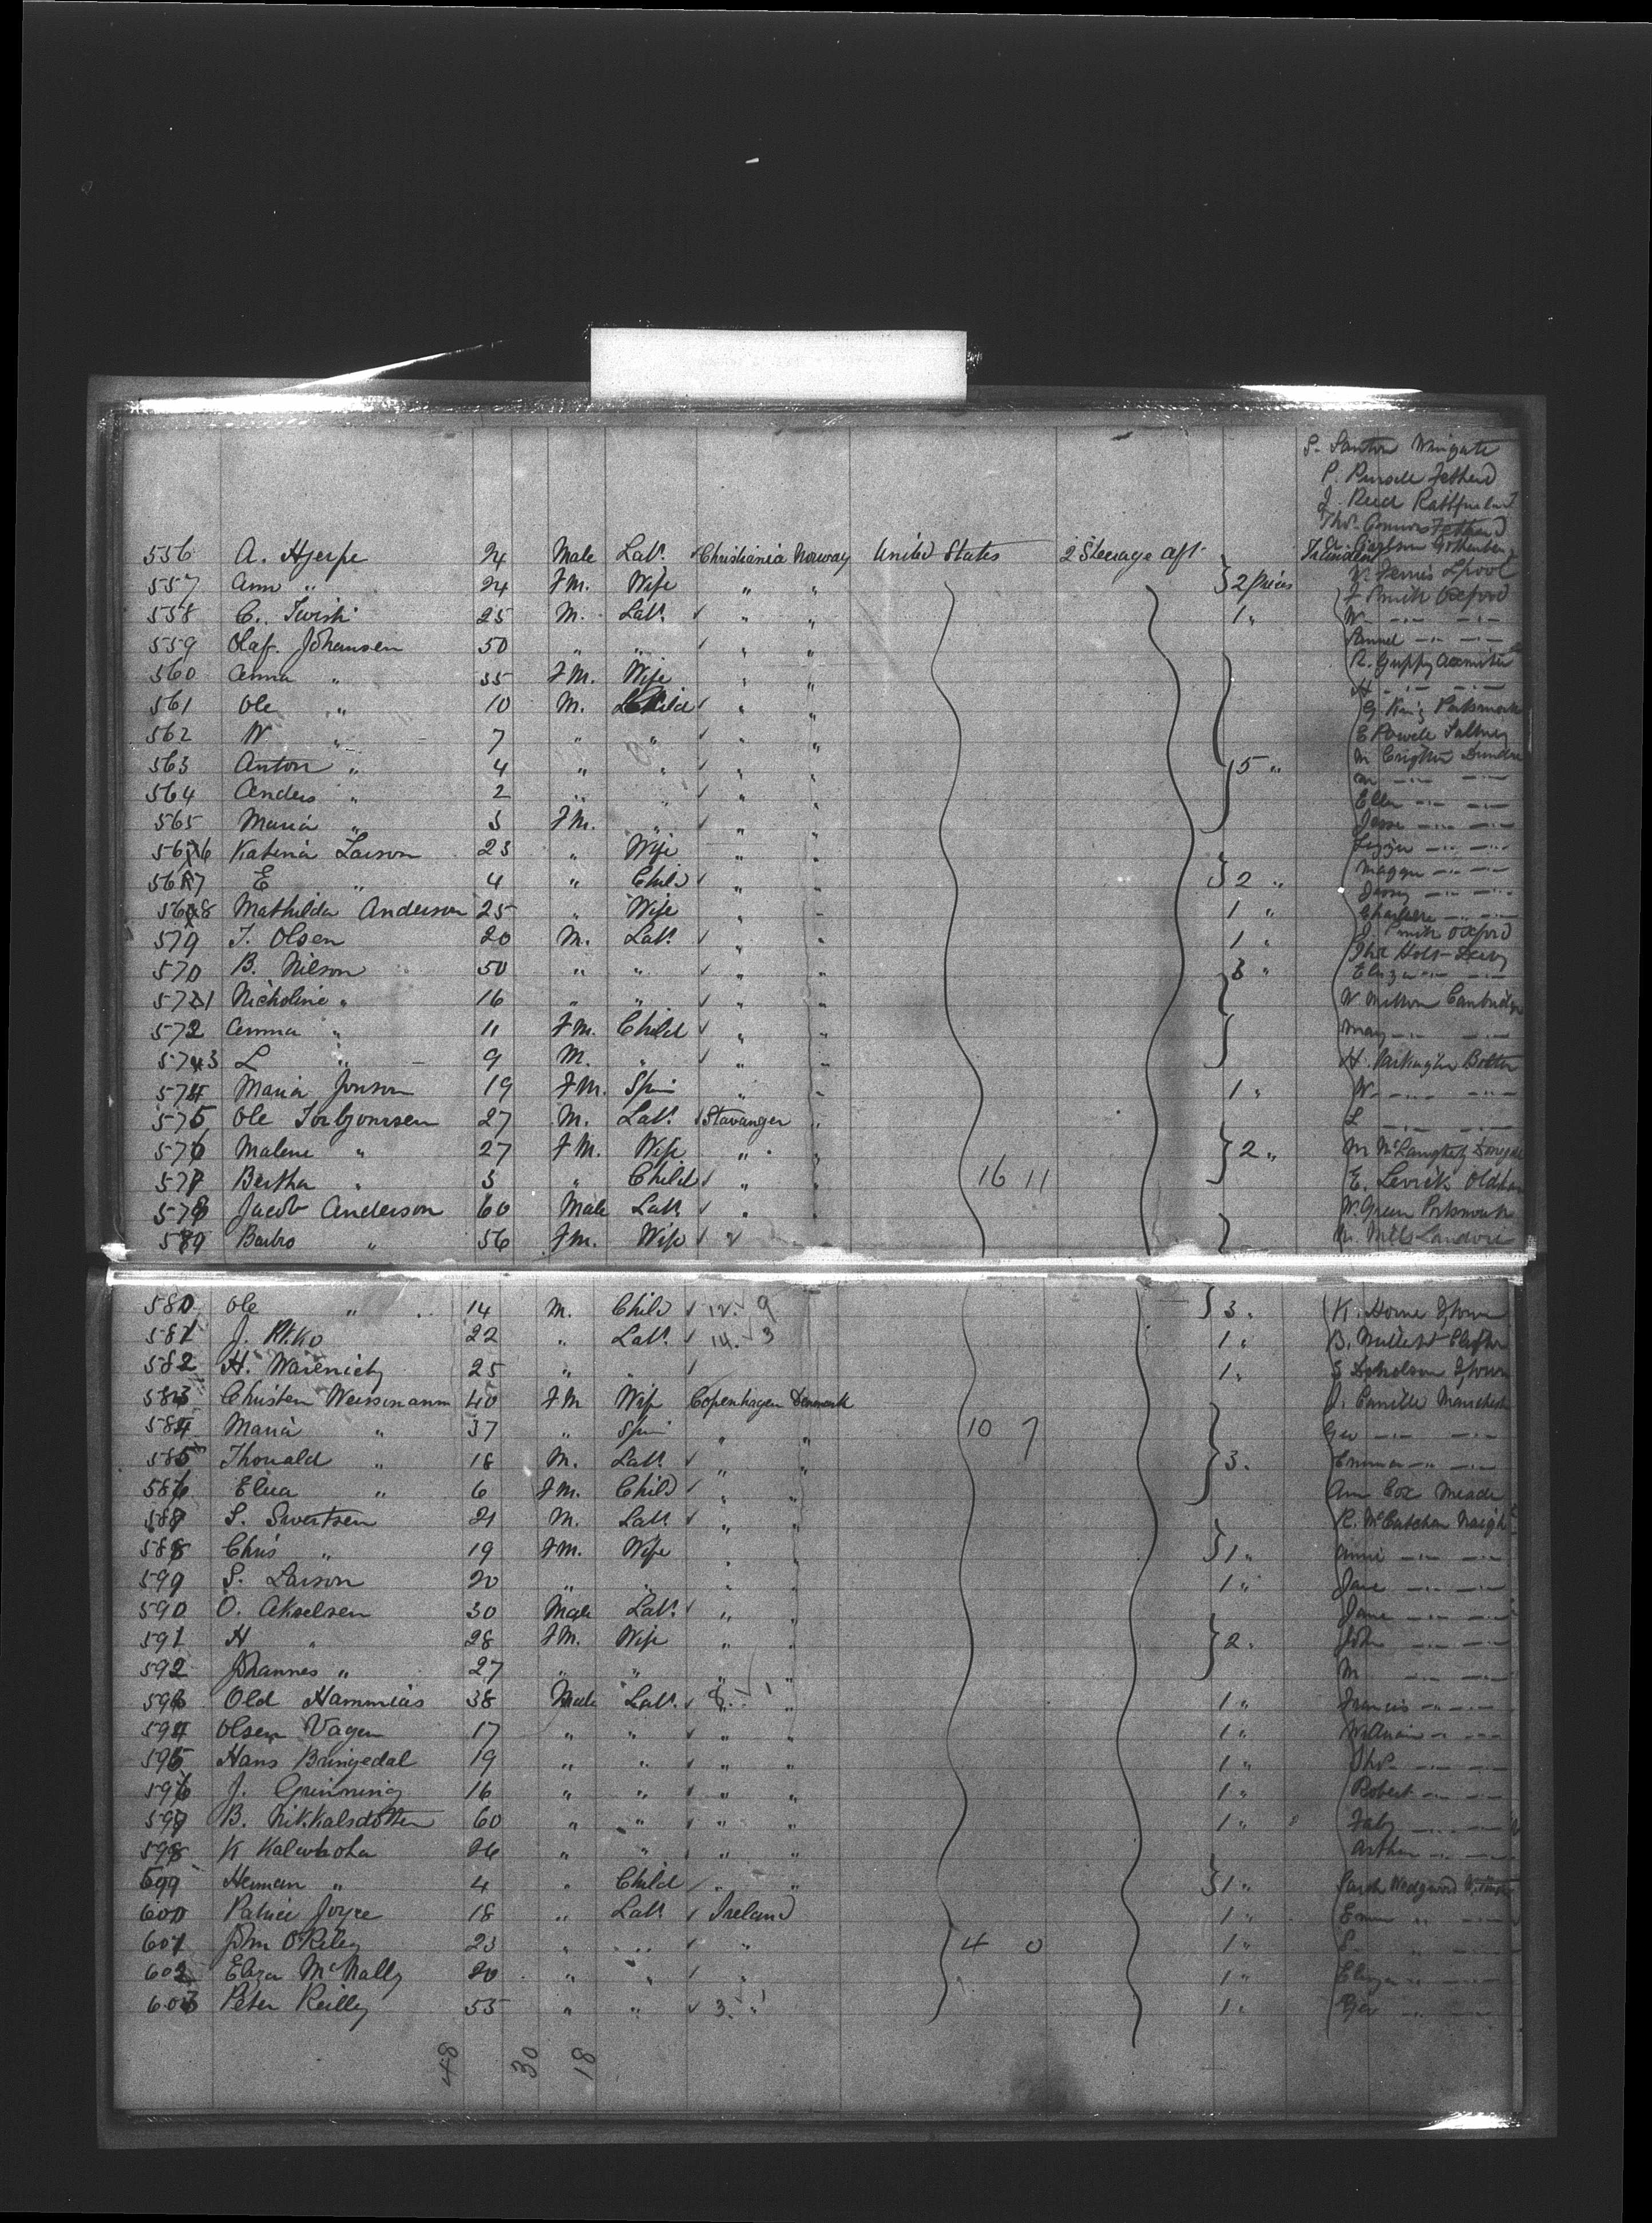 S. Santon Wingate
P. Pursell Fethard
J. Reed
Thos. Connors Fethard
A. Carlson Gothenberg
556 A. Hjerpe 24 Male Labr. Christiania Norway United States 2 Steerage aft
557 Ann " 24 F.M. Wife " " } 2 pieces W. Ferris Lpool
558 C. Twisk 25 M. Labr. ✓ " " 1 " F. Smith Oxford
559 Olaf Johansen 50 " " ✓ " " W.
Samuel
560 Anna " 35 F.M. Wife " " R. Guppy Axminster
561 Ole " 10 M. Child ✓ " " H
562 W " 7 " " ✓ " " G. King Portsmouth
E Powell Saltney
563 Anton " 4 " " ✓ " " } 5 " M Crighton Dundee
564 Anders " 2 " " ✓ " " Ellen
565 Maria " 3 F.M. " ✓ " " Jesse
566 Katinia Larson 23 " Wife " " Lizzie
567 E " 4 " Child ✓ " } 2 " Maggie
568 Mathilda Anderson 25 " Wife " " 1 "
579 T. Olsen 20 M. Labr. ✓ " " 1 " J. Smith Oxford
570 B. Nilson 50 " " ✓ " " } 3 " Thos Holt
Eliza
571 Nicholine " 16 " " ✓ " " W
572 Anna " 11 F.M. Child ✓ " " May
573 L " 9 M. " ✓ " " H. Bolton
574 Maria Jonson 19 F.M. Spin " " 1 " W.
575 Ole Torbjornsen 27 M. Labr. ✓ Stavanger " L
576 Malene " 27 F.M. Wife " " } 2 " M McLaughlin
577 Bertha " 3 " Child ✓ " " 16 11 E. Levick Oldham
578 Jacob Anderson 60 Male Labr. ✓ " " W. Green Portsmouth
589 Barbro " 56 F.M. Wife ✓ M. Mills Landore
580 Ole " 14 M. Child ✓ 12. ✓ 9 } 3 " K. Horne
581 J. Rikko 22 " Labr. ✓ 14. ✓ 3 1 " B.
582 H. Warenich 25 " " ✓ 1 " S
583 Christen Weissmann 40 F.M Wife Copenhagen Denmark J.
584 Maria " 37 " Spin " " 10 7 Geo
585 Thorvald " 18 M. Labr. ✓ " " } 3 " Emma
586 Elisa " 6 F.M. Child ✓ " " Ann Cox Meade
587 S. Sivertsen 21 M. Labr. ✓ " " R. McCutchan
588 Chris " 19 F.M. Wife " " } 1 " Annie
599 S. Larson 20 " " " " 1 " Jane
590 O. Akselsen 30 Male Labr. ✓ " " Jane
591 H " 28 F.M. Wife " " } 2 " John
592 Johannes " 27 " " " " M
593 Old Hammias 38 Male Labr. ✓ 8. ✓ 1 " 1 " Francis
594 Olsen Vagen 17 " " ✓ " " 1 " William
595 Hans Bringedal 19 " " ✓ " " 1 " Thos.
596 J. Grinning 16 " " ✓ " " 1 " Robert
597 B. Nikkalsdotten 60 " " ✓ " " 1 "
598 K Kalwhoha 26 " " " " Arthur
599 Herman " 4 " Child " " } 1 " Sarah Wedgwood
600 Patrick Joyce 18 " Labr. ✓ Ireland 1 " Emma
601 John O'Riley 23 " " ✓ " } 4 0 1 " E
602 Eliza McNally 20 " " ✓ " 1 " Eliza
603 Peter Reilly 55 " " ✓ 3. ✓ 1 1 " Geo
48 30 18